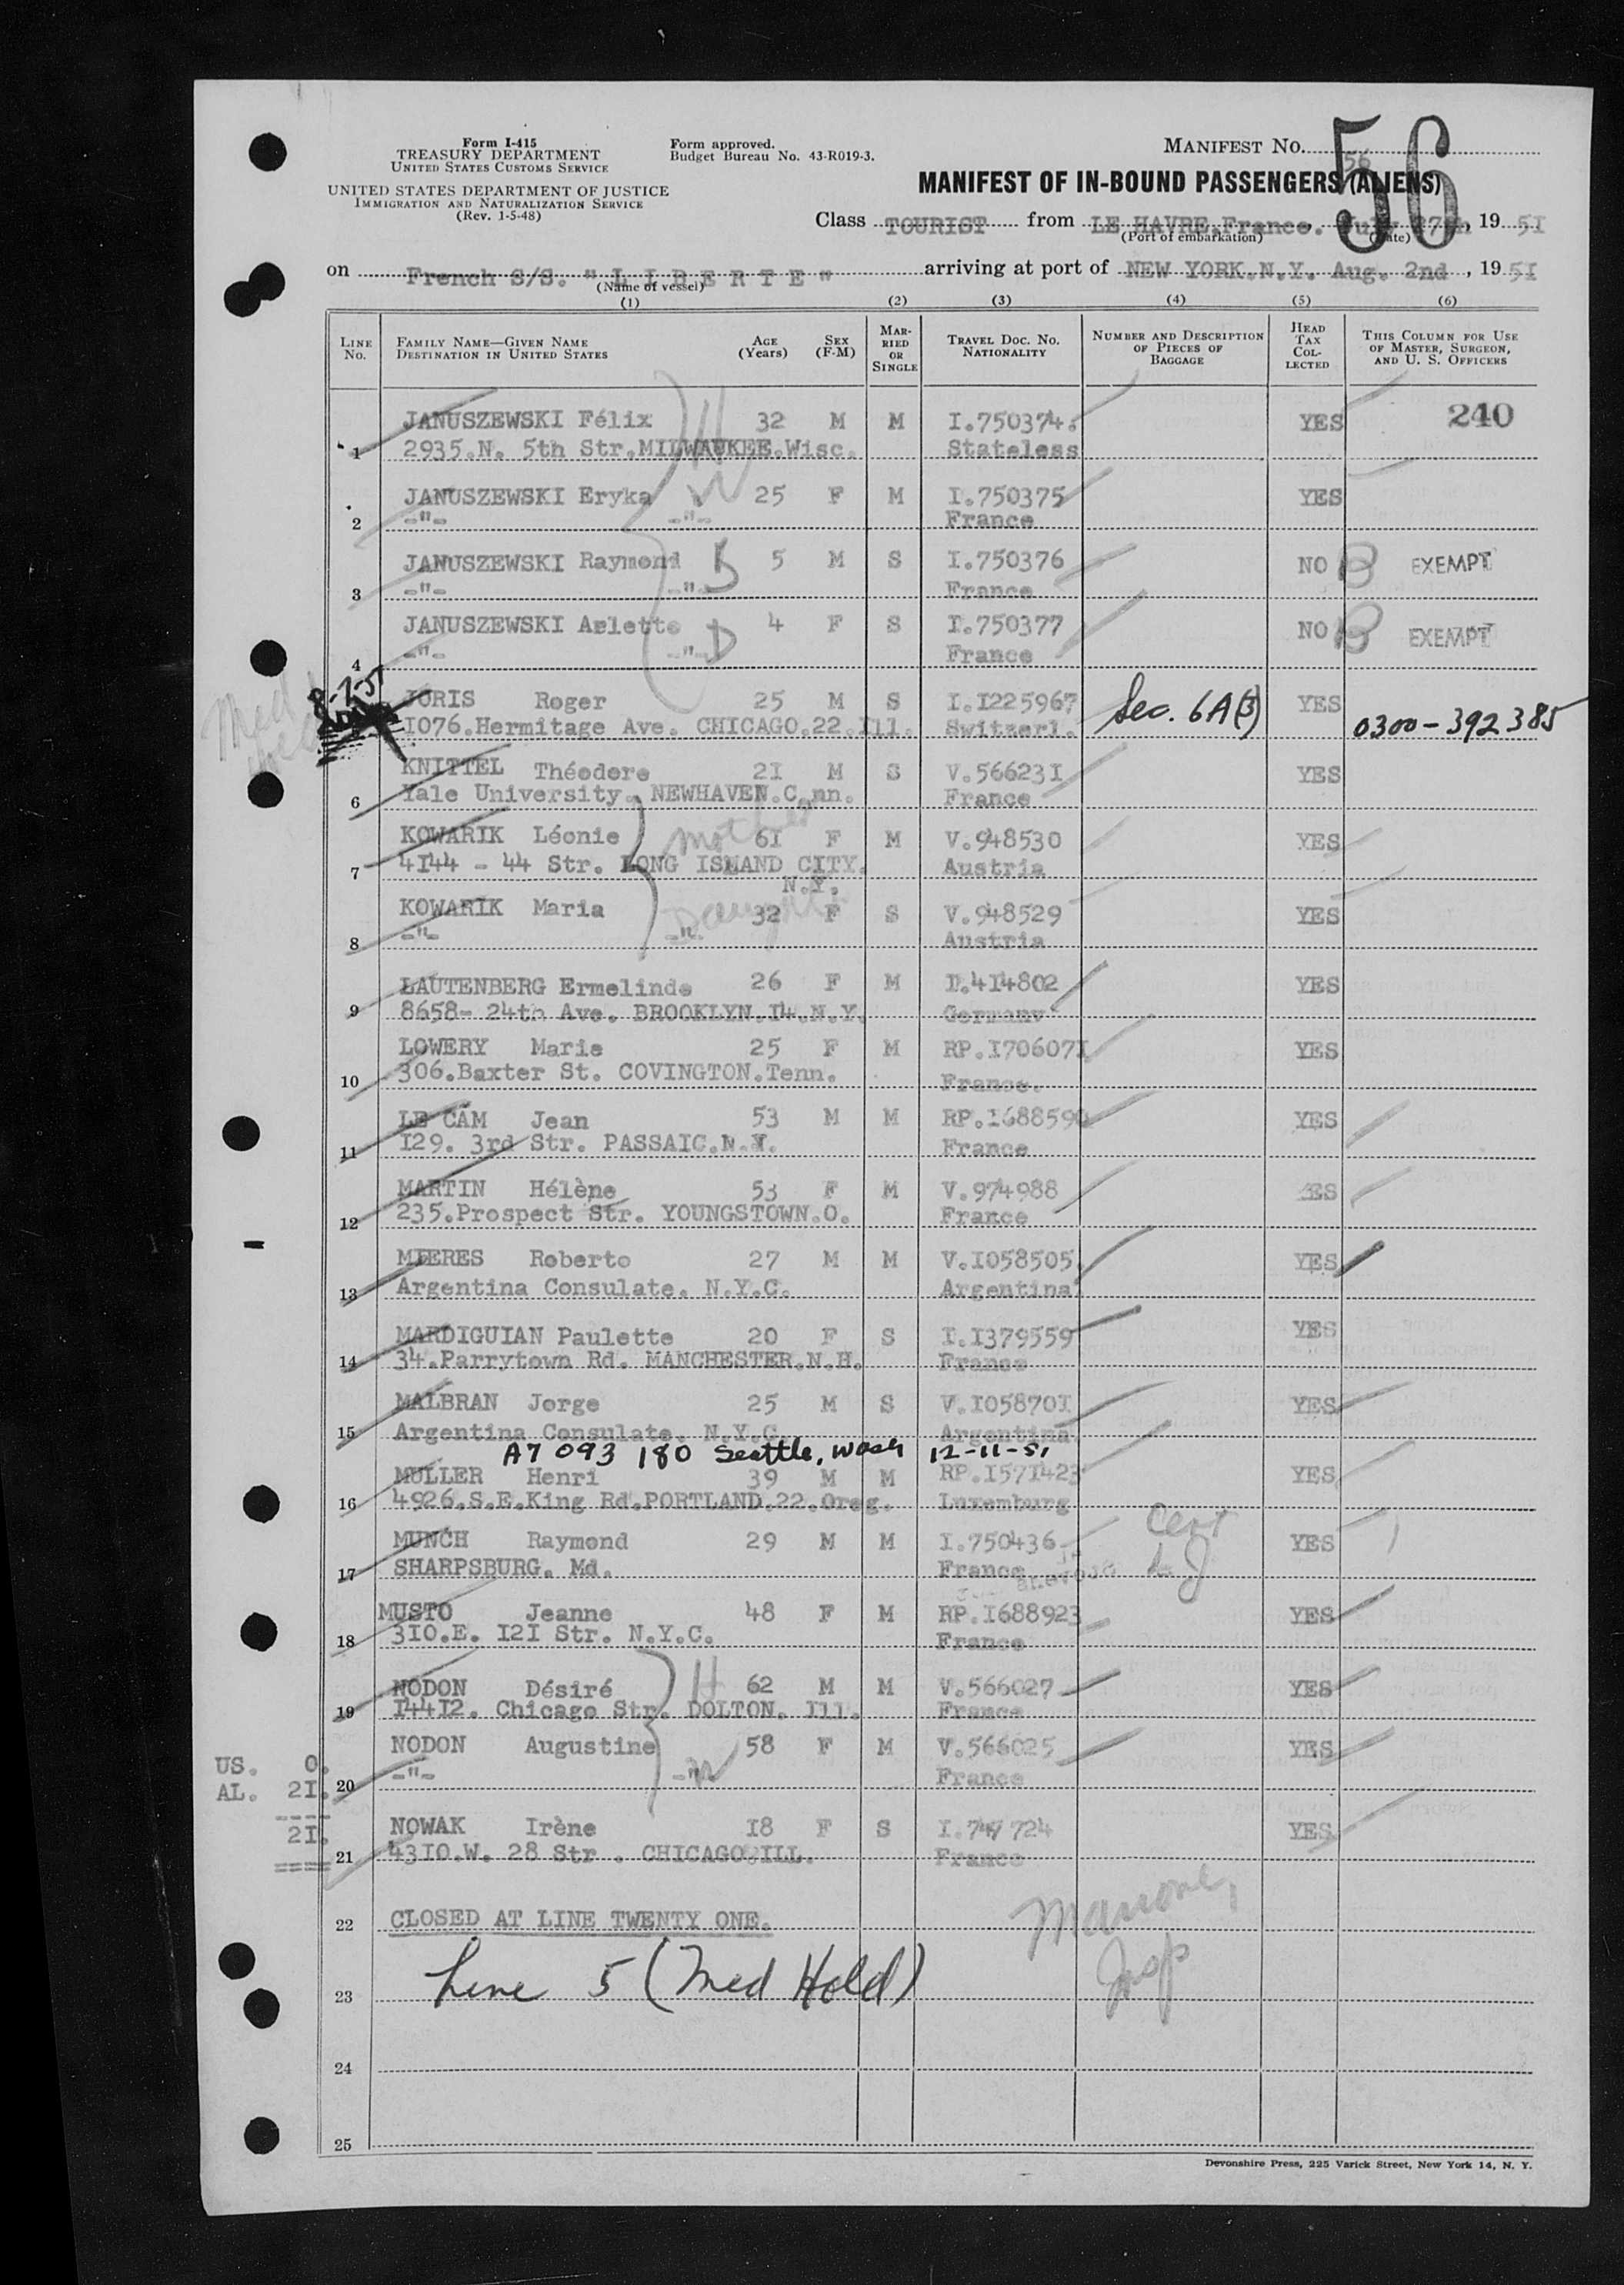 Form I-415
TREASURY DEPARTMENT
UNITED STATES CUSTOMS SERVICE
UNITED STATES DEPARTMENT OF JUSTICE
IMMIGRATION AND NATURALIZATION SERVICE
(Rev. 1-5-48)
Form approved.
Budget Bureau No. 43-R019-3.
MANIFEST No. 56
56
MANIFEST OF IN-BOUND PASSENGERS (ALIENS)
Class TOURIST from LE HAVRE.France. July 27th, 19 5I
(Port of embarkation) (Date)
on French S/S. "L I B E R T E" arriving at port of NEW YORK.N.Y. Aug. 2nd, 19 5I
(Name of vessel)
(1) (2) (3) (4) (5) (6)
LINE No. FAMILY NAME—GIVEN NAME DESTINATION IN UNITED STATES AGE (Years) SEX (F-M) MARRIED OR SINGLE TRAVEL DOC. NO. NATIONALITY NUMBER AND DESCRIPTION OF PIECES OF BAGGAGE HEAD TAX COLLECTED THIS COLUMN FOR USE OF MASTER, SURGEON, AND U. S. OFFICERS
JANUSZEWSKI Félix H 32 M M I.750374. YES 240
1 2935.N. 5th Str.MILWAUKEE.Wisc. Stateless
JANUSZEWSKI Eryka W 25 F M I.750375 YES
2 -"- -"- France
JANUSZEWSKI Raymond S 5 M S I.750376 NO B EXEMPT
3 -"- -"- France
JANUSZEWSKI Arlette D 4 F S I.750377 NO B EXEMPT
4 -"- -"- France
Med Hold 8-2-51
JORIS Roger 25 M S I.I225967 Sec. 6A(3) YES
I076.Hermitage Ave. CHICAGO.22.Ill. Switzerl. 0300-392385
KNITTEL Théodore 2I M S V.56623I YES
6 Yale University. NEWHAVEN.Conn. France
KOWARIK Léonie mother 6I F M V.948530 YES
7 4I44 - 44 Str. LONG ISLAND CITY. Austria
N.Y.
KOWARIK Maria Daught. 32 F S V.948529 YES
8 -"- -"- Austria
LAUTENBERG Ermelinde 26 F M I.4I4802 YES
9 8658- 24th Ave. BROOKLYN.I4.N.Y. Germany
LOWERY Marie 25 F M RP.I70607I YES
10 306.Baxter St. COVINGTON.Tenn. France.
LE CAM Jean 53 M M RP.I688590 YES
11 I29. 3rd Str. PASSAIC.N.Y. France
MARTIN Hélène 53 F M V.974988 YES
12 235.Prospect Str. YOUNGSTOWN.O. France
MIERES Roberto 27 M M V.I058505. YES
13 Argentina Consulate. N.Y.C. Argentina
MARDIGUIAN Paulette 20 F S I.I379559 YES
14 34.Parrytown Rd. MANCHESTER.N.H. France
MALBRAN Jorge 25 M S V.I05870I YES
15 Argentina Consulate. N.Y.C. Argentina.
A7 093 180 Seattle, Wash 12-11-51
MULLER Henri 39 M M RP.I57I423 YES
16 4926.S.E.King Rd.PORTLAND.22.Oreg. Luxemburg
MUNCH Raymond 29 M M I.750436 Cert YES
17 SHARPSBURG. Md. France
MUSTO Jeanne 48 F M RP.I688923 YES
18 3I0.E. I2I Str. N.Y.C. France
NODON Désiré H 62 M M V.566027 YES
19 I44I2. Chicago Str. DOLTON. Ill. France
NODON Augustine 58 F M V.566025 YES
US. 0.
20 -"- -"- W France
AL. 2I.
----
2I.
====
NOWAK Irène I8 F S I.747 724 YES
21 43I0.W. 28 Str . CHICAGO ILL. France
22 CLOSED AT LINE TWENTY ONE.
Insp
23 Line 5 (Med Hold)
24
25
Devonshire Press, 225 Varick Street, New York 14, N. Y.